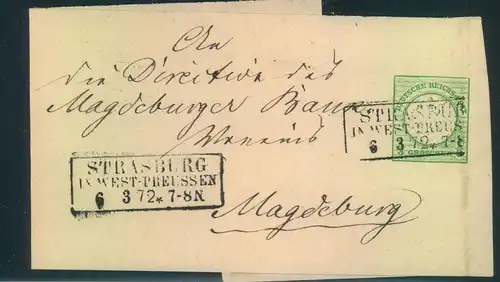 An
die Direction des
Magdeburger Bank
Vereins
Magdeburg
STRASBURG
IN WEST-PREUSSEN
6 3 72 * 7-8N
DEUTSCHE REICHS
STRASBU
IN WEST-PREUS
6 3 72 * 7-8